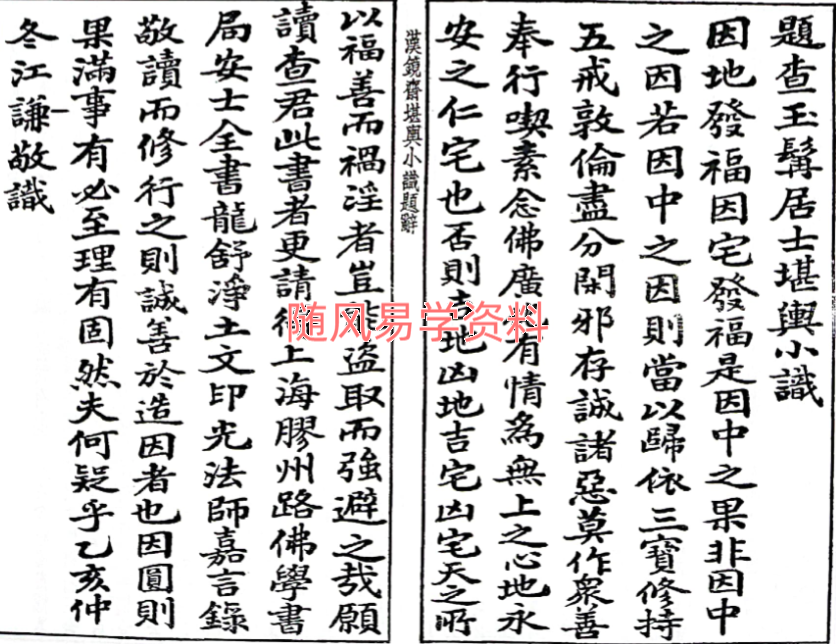 題查玉髯居士堪輿小識
因地發福因宅發福是因中之果非因中
之因若因中之因則當以歸依三寶修持
五戒敦倫盡分閑邪存誠諸惡莫作眾善
奉行喫素念佛廣化有情為無上之心地永
安之仁宅也否則吉地凶地吉宅凶宅天之所
漢鏡齋堪輿小識題辭
以福善而禍淫者豈能盜取而強避之哉願
讀查君此書者更請從上海膠州路佛學書
局安士全書龍舒淨土文印光法師嘉言錄
敬讀而修行之則誠善於造因者也因圓則
果滿事有必至理有固然夫何疑乎乙亥仲
冬江謙敬識
随风易学资料